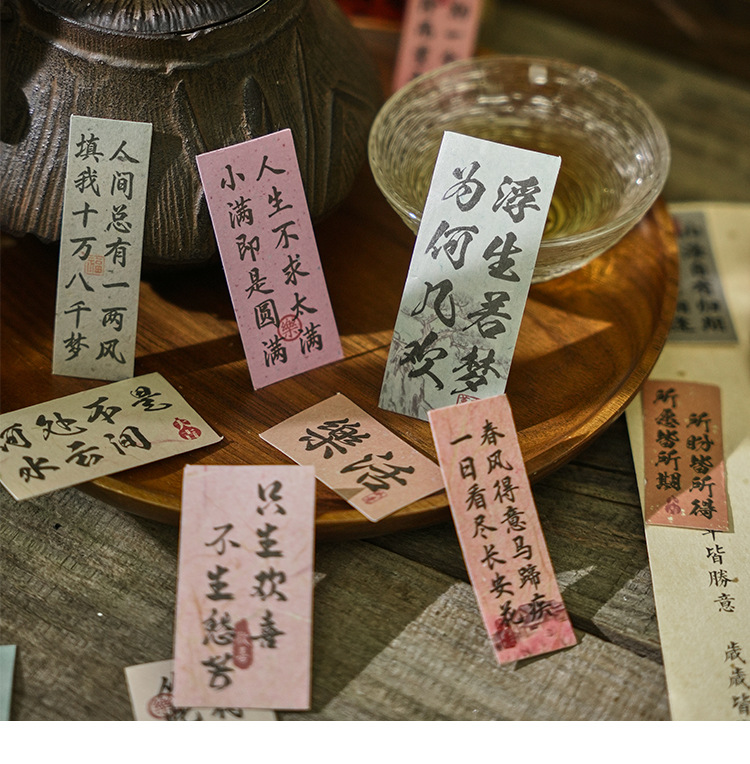 人间总有一两风
填我十万八千梦
人生不求太满
小满即是圆满
樂
浮生若梦
为何几欢
何处不是
水云间
樂活
春风得意马蹄疾
一日看尽长安花
只生欢喜
不生愁苦
所盼皆所得
所愿皆所期
皆勝意
歲歲皆